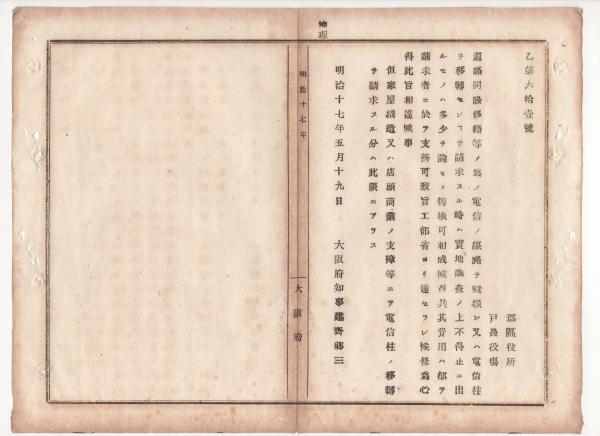 地理
乙第六拾壹號
郡區役所
戸長役場
道路開設修繕等ノ爲メ電信ノ線路ヲ變換シ又ハ電信柱
ヲ移轉センコヲ請求スル時ハ實地臨査ノ上不得止ニ出
ルモノハ多少ヲ論セス轉換可相成候得共其費用ハ都テ
請求者ニ於テ支辨可致旨工部省ヨリ達セラレ候條爲心
得此旨相達候事
但家屋構造又ハ店頭商業ノ支障等ニテ電信柱ノ移轉
ヲ請求スル分ハ此限ニアラス
明治十七年五月十九日
大阪府知事建野郷三
明治十七年
大阪府